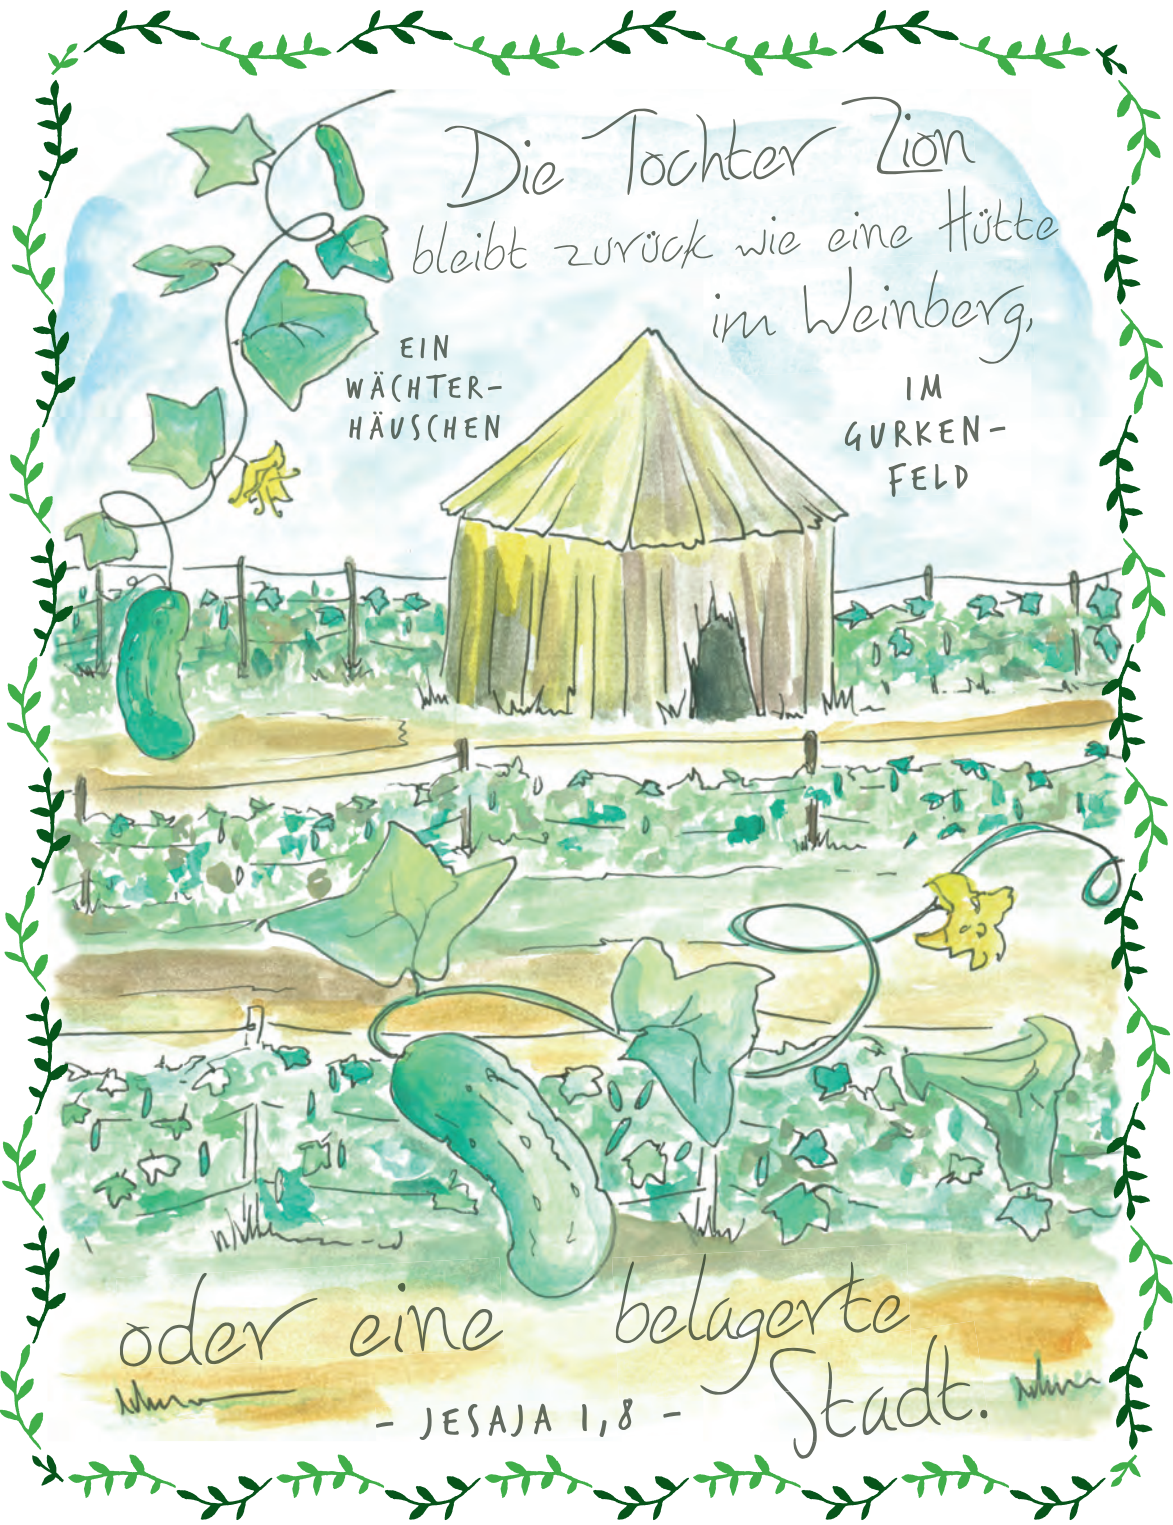 Die Tochter Zion
bleibt zurück wie eine Hütte
im Weinberg,
EIN
WÄCHTER-
HÄUSCHEN
IM
GURKEN-
FELD
oder eine belagerte
Stadt.
- JESAJA 1,8 -